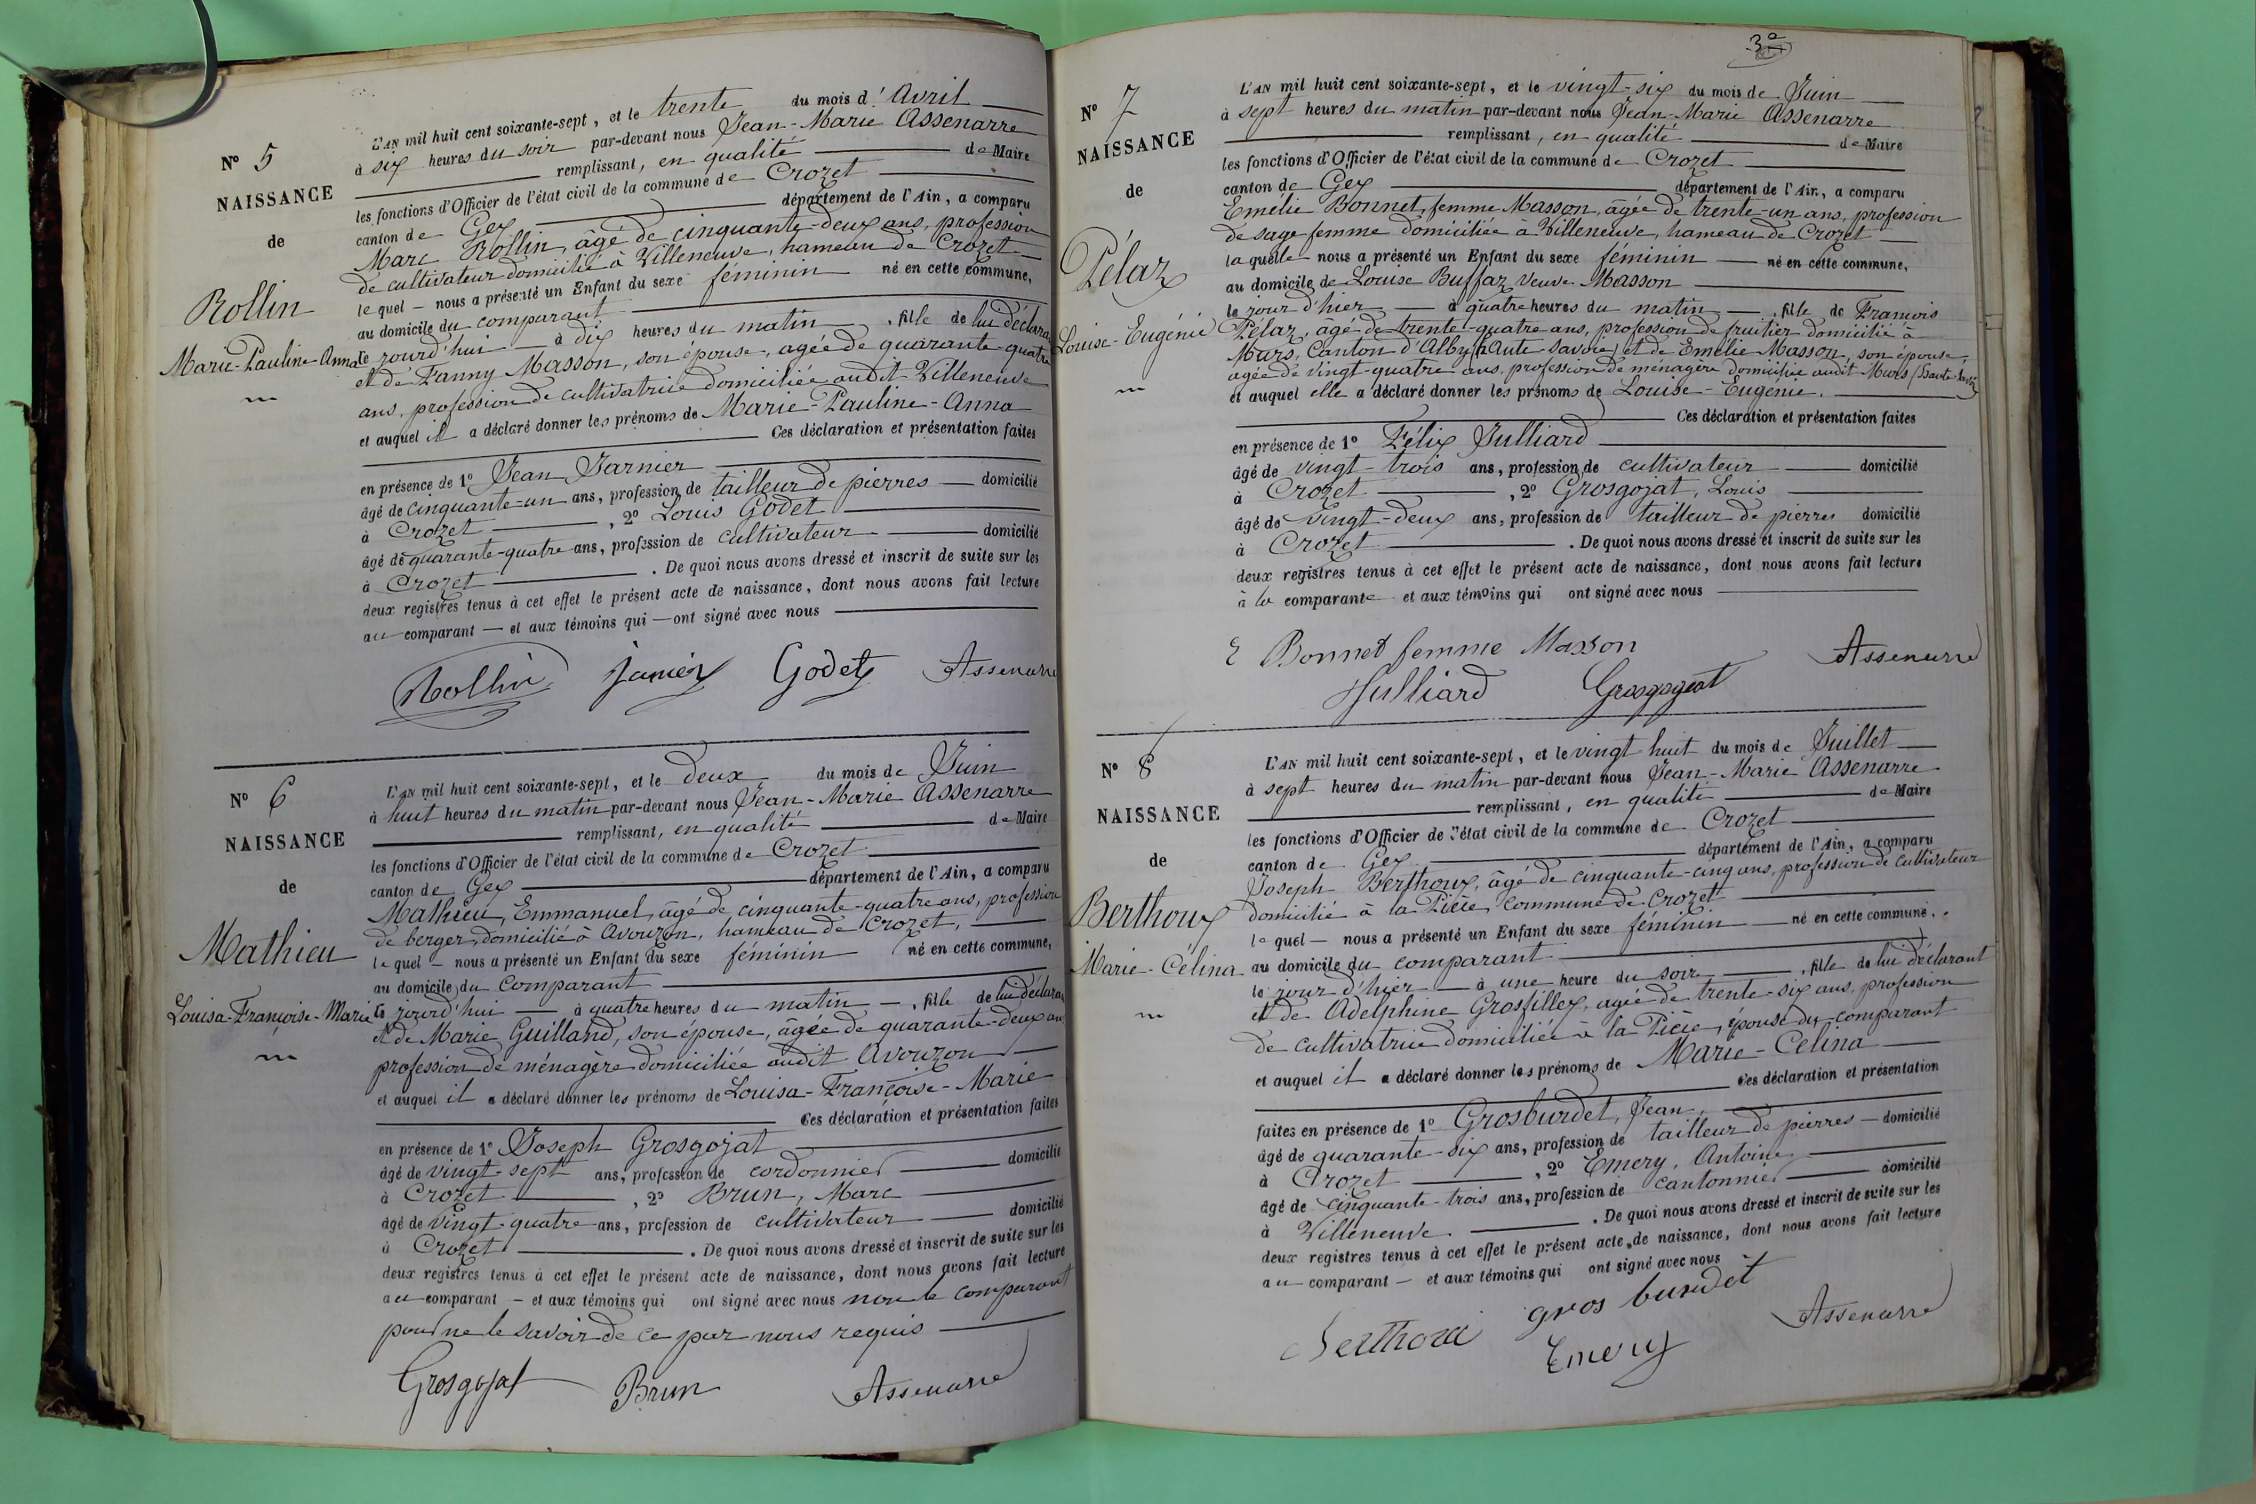 N° 5
NAISSANCE
de
Rollin
Marie-Pauline-Anna
L'AN mil huit cent soixante-sept, et le trente du mois d'Avril
à six heures du soir par-devant nous Jean-Marie Assenarre
remplissant, en qualité de Maire
les fonctions d'Officier de l'état civil de la commune de Crozet
canton de Gex département de l'Ain, a comparu
Marc Rollin, âgé de cinquante-deux ans, profession
de cultivateur domicilié à Villeneuve, hameau de Crozet
lequel nous a présenté un Enfant du sexe féminin né en cette commune,
au domicile du comparant
le jourd'hui à dix heures du matin, fille de lui déclarant
et de Fanny Masson, son épouse, agée de quarante-quatre
ans, profession de cultivatrice domiciliée audit Villeneuve
et auquel il a déclaré donner les prénoms de Marie-Pauline-Anna
Ces déclaration et présentation faites
en présence de 1° Jean Jarnier
âgé de cinquante-un ans, profession de tailleur de pierres domicilié
à Crozet, 2° Louis Godet
âgé de quarante-quatre ans, profession de cultivateur domicilié
à Crozet. De quoi nous avons dressé et inscrit de suite sur les
deux registres tenus à cet effet le présent acte de naissance, dont nous avons fait lecture
au comparant et aux témoins qui ont signé avec nous
Rollin Janier Godet Assenarre
N° 6
NAISSANCE
de
Mathieu
Louisa-Françoise-Marie
L'AN mil huit cent soixante-sept, et le deux du mois de Juin
à huit heures du matin par-devant nous Jean-Marie Assenarre
remplissant, en qualité de Maire
les fonctions d'Officier de l'état civil de la commune de Crozet
canton de Gex département de l'Ain, a comparu
Mathieu, Emmanuel, âgé de cinquante-quatre ans, profession
de berger, domicilié à Avouzon, hameau de Crozet,
lequel nous a présenté un Enfant du sexe féminin né en cette commune,
au domicile du comparant
le jourd'hui à quatre heures du matin, fille de lui déclarant
et de Marie Guilland, son épouse, agée de quarante-deux ans
profession de ménagère domiciliée audit Avouzon
et auquel il a déclaré donner les prénoms de Louisa-Françoise-Marie
Ces déclaration et présentation faites
en présence de 1° Joseph Grosgojat
âgé de vingt-sept ans, profession de cordonnier domicilié
à Crozet, 2° Brun, Marc
âgé de vingt-quatre ans, profession de cultivateur domicilié
à Crozet. De quoi nous avons dressé et inscrit de suite sur les
deux registres tenus à cet effet le présent acte de naissance, dont nous avons fait lecture
au comparant et aux témoins qui ont signé avec nous non le comparant
pour ne le savoir de ce par nous requis
Grosgojat Brun Assenarre
3e
N° 7
NAISSANCE
de
Pélaz
Louise-Eugénie
L'AN mil huit cent soixante-sept, et le vingt-six du mois de Juin
à sept heures du matin par-devant nous Jean-Marie Assenarre
remplissant, en qualité de Maire
les fonctions d'Officier de l'état civil de la commune de Crozet
canton de Gex département de l'Ain, a comparu
Emélie Bonnet, femme Masson, âgée de trente-un ans, profession
de sage femme domiciliée à Villeneuve, hameau de Crozet
laquelle nous a présenté un Enfant du sexe féminin né en cette commune,
au domicile de Louise Buffaz veuve Masson
le jour d'hier à quatre heures du matin, fille de Francois
Pélaz, âgé de trente-quatre ans, profession de fruitier domicilié à
Murs, Canton d'Alby (haute Savoie) et de Emélie Masson, son épouse,
agée de vingt-quatre ans, profession de ménagère domiciliée audit Murs (Haute-Savoie)
et auquel elle a déclaré donner les prénoms de Louise-Eugénie.
Ces déclaration et présentation faites
en présence de 1° Félix Julliard
âgé de vingt-trois ans, profession de cultivateur domicilié
à Crozet, 2° Grosgojat, Louis
âgé de vingt-deux ans, profession de tailleur de pierres domicilié
à Crozet. De quoi nous avons dressé et inscrit de suite sur les
deux registres tenus à cet effet le présent acte de naissance, dont nous avons fait lecture
à la comparante et aux témoins qui ont signé avec nous
E Bonnet femme Masson Assenarre
Julliard Grosgogeat
N° 8
NAISSANCE
de
Berthoux
Marie-Célina
L'AN mil huit cent soixante-sept, et le vingt huit du mois de Juillet
à sept heures du matin par-devant nous Jean-Marie Assenarre
remplissant, en qualité de Maire
les fonctions d'Officier de l'état civil de la commune de Crozet
canton de Gex département de l'Ain, a comparu
Joseph Berthoux, âgé de cinquante-cinq ans, profession de cultivateur
domicilié à la Pièce, commune de Crozet
lequel nous a présenté un Enfant du sexe féminin né en cette commune,
au domicile du comparant
le jour d'hier à une heure du soir, fille de lui déclarant
et de Adelphine Grosfillex, agée de trente-six ans, profession
de cultivatrice domiciliée à la Pièce, épouse du comparant
et auquel il a déclaré donner les prénoms de Marie-Célina
Ces déclaration et présentation
faites en présence de 1° Grosburdet, Jean,
âgé de quarante-six ans, profession de tailleur de pierres domicilié
à Crozet, 2° Emery, Antoine
âgé de cinquante-trois ans, profession de cantonnier domicilié
à Villeneuve. De quoi nous avons dressé et inscrit de suite sur les
deux registres tenus à cet effet le présent acte de naissance, dont nous avons fait lecture
au comparant et aux témoins qui ont signé avec nous
Berthoux gros burdet Assenarre
Emery